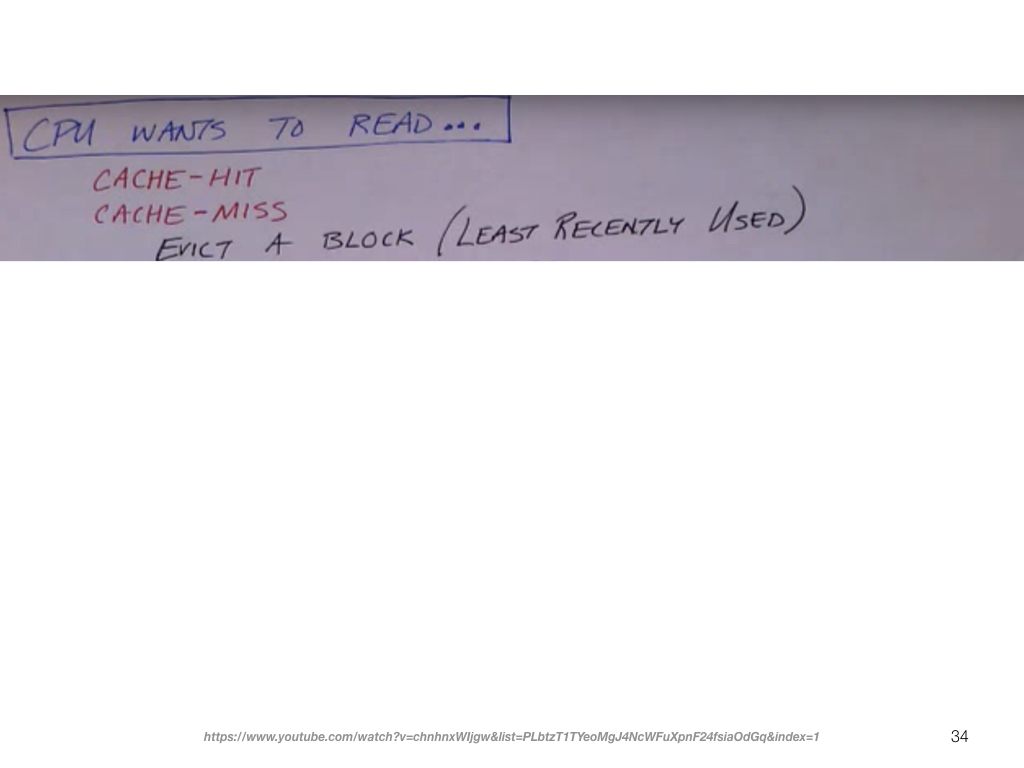 CPU WANTS TO READ...
CACHE-HIT
CACHE-MISS
EVICT A BLOCK (LEAST RECENTLY USED)
https://www.youtube.com/watch?v=chnhnxWIjgw&list=PLbtzT1TYeoMgJ4NcWFuXpnF24fsiaOdGq&index=1
34